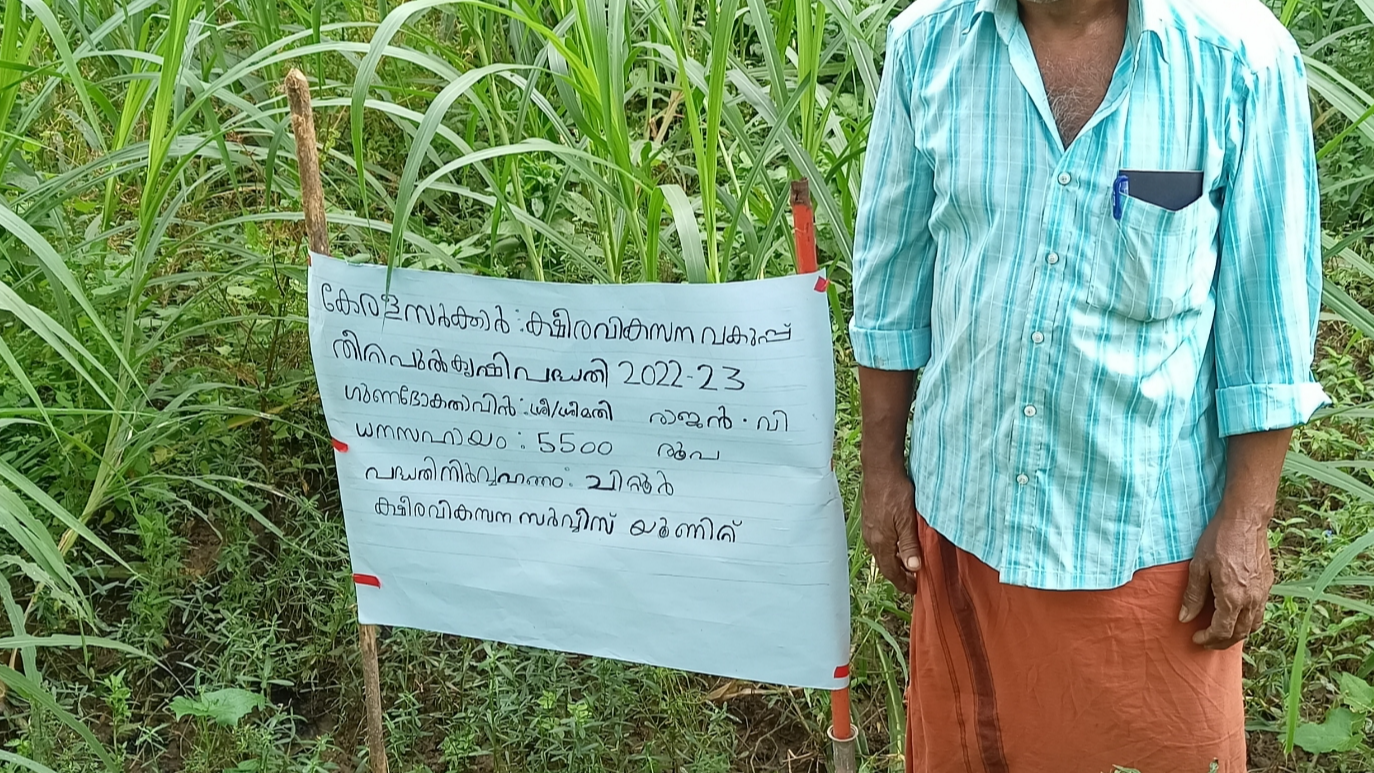 കേരളസർക്കാർ : ക്ഷീരവികസന വകുപ്പ്
തീറ്റപുൽകൃഷി പദ്ധതി 2022-23
ഗുണഭോക്താവിൻ : ശ്രീ/ശ്രീമതി രാജൻ . വി
ധനസഹായം : 5500 രൂപ
പദ്ധതിനിർവ്വഹണം : ചിറ്റൂർ
ക്ഷീരവികസന സർവ്വീസ് യൂണിറ്റ്